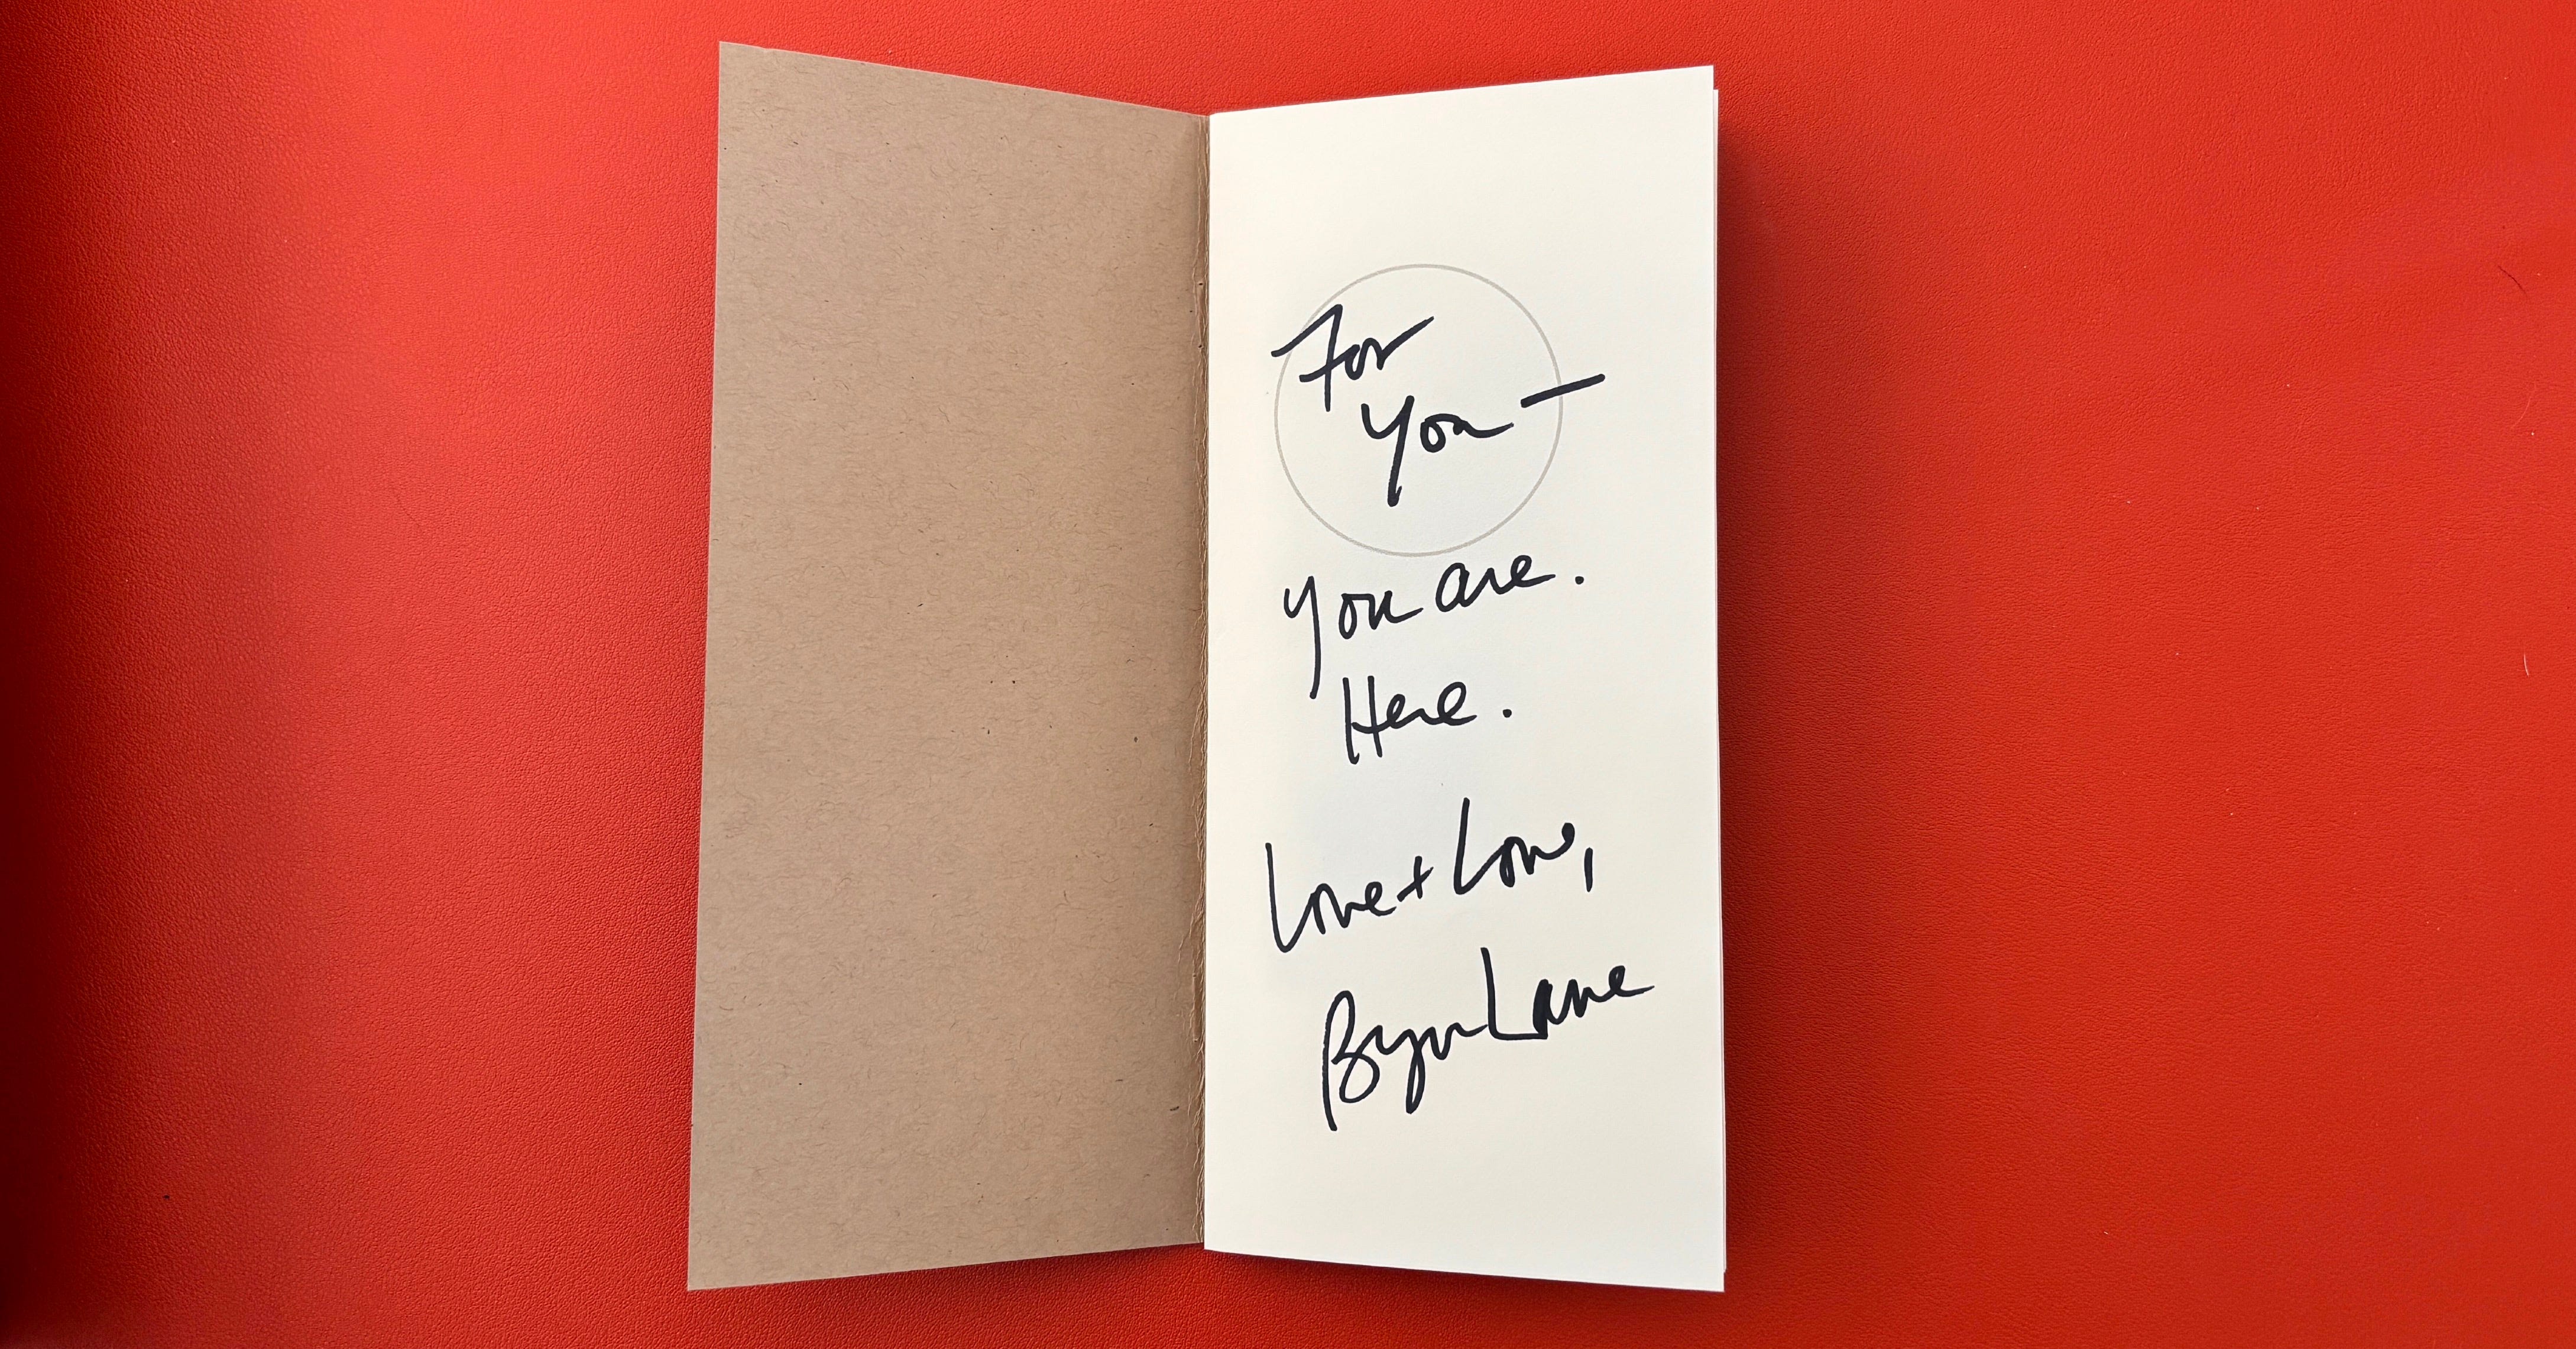 For
You —
You are.
Here.
Love + Love,
Bryn Lane